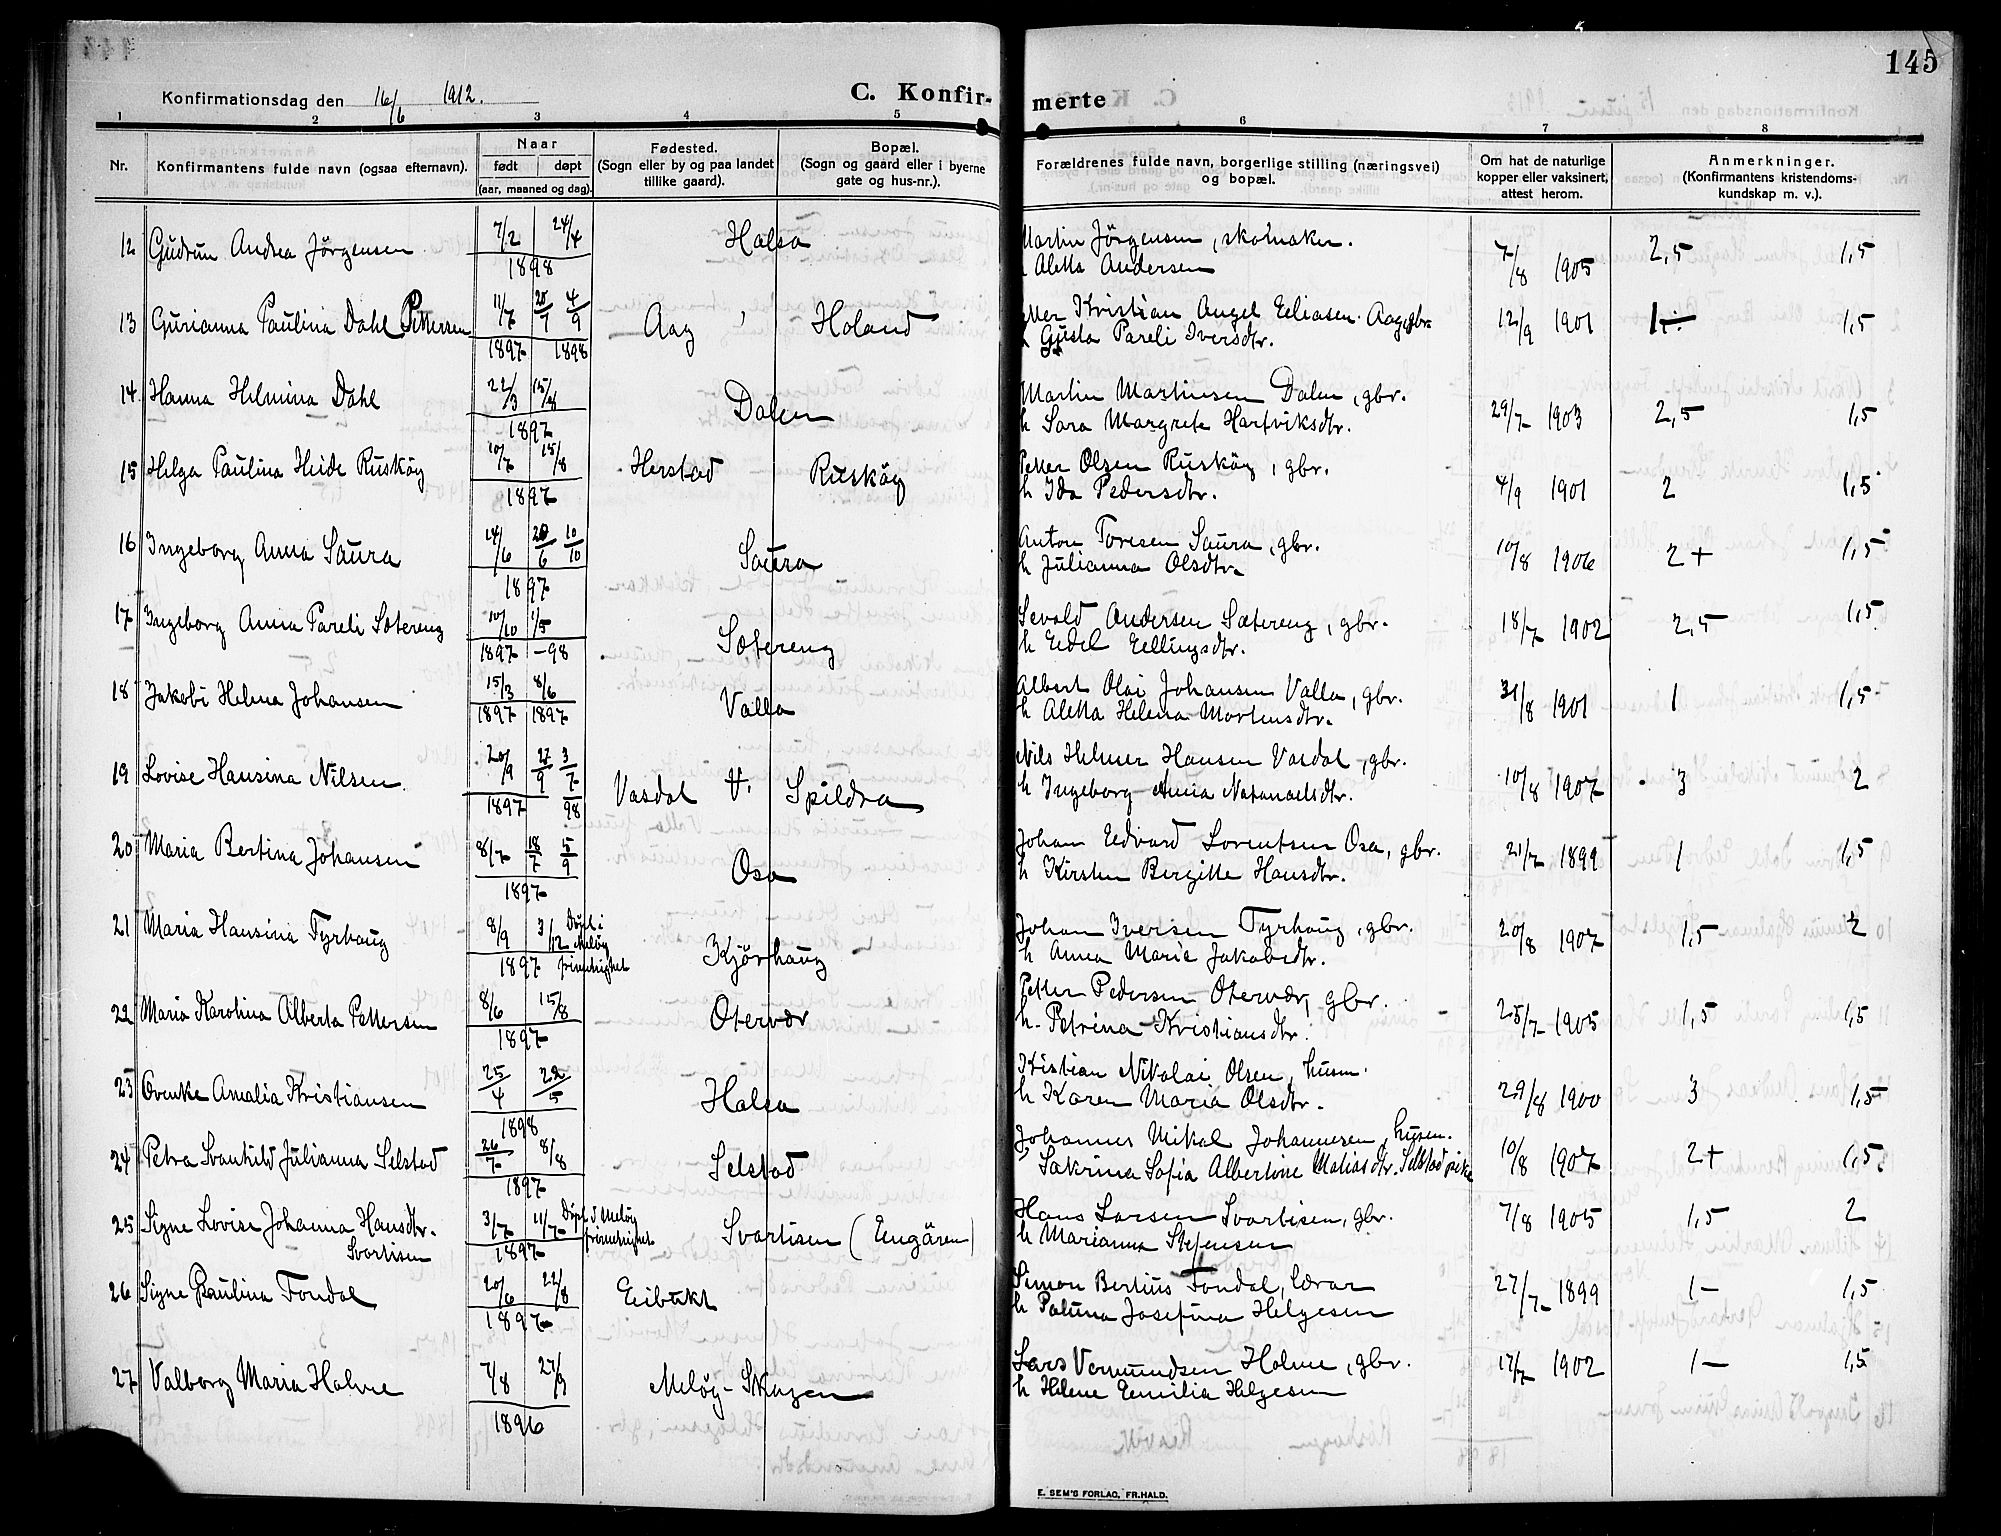 145
Konfirmationsdag den 16/6 1912.
C. Konfir- merte
1 2 3 4 5 6 7 8
Nr. Konfirmantens fulde navn (ogsaa efternavn). Naar født døpt (aar, maaned og dag). Fødested. (Sogn eller by og paa landet tillike gaard). Bopæl. (Sogn og gaard eller i byerne gate og hus-nr.). Forældrenes fulde navn, borgerlige stilling (næringsvei) og bopæl. Om hat de naturlige kopper eller vaksinert, attest herom. Anmerkninger. (Konfirmantens kristendoms- kundskap m. v.).
12 Gudrun Andrea Jörgensen 7/2 24/4 1898 Halsa Martin Jörgensen, skomaker. 7/8 1905 2,5 1,5
Aletta Andersen
13 Gurianna Paulina Dahl Pettersen 11/7 20/7 4/9 1897 1898 Aag Holand Kristian Angel Eeliasen Aag, gbr. 12/9 1901 1 1,5
Gjusta Pareli Iversdtr.
14 Hanna Helmina Dahl 22/3 15/8 1897 Dalen Martin Martinsen Dalen, gbr. 29/7 1903 2,5 1,5
h Sara Margrete Hartviksdtr.
15 Helga Paulina Heide Rusköy 10/7 15/8 1897 Herstad Rusköy Petter Olsen Rusköy, gbr. 4/9 1901 2 1,5
h Ida Pedersdtr.
16 Ingeborg Anna Saura 14/6 20/6 10/10 1897 Saura Anton Toresen Saura, gbr. 10/8 1906 2+ 1,5
h Julianna Olsdtr.
17 Ingeborg Anna Pareli Sætereng 10/10 1/5 1897 -98 Sætereng Sevald Andersen Sætereng, gbr. 18/7 1902 2,5 1,5
h Eedel Eellingsdtr.
18 Jakobi Helena Johansen 15/3 8/6 1897 1897 Valla Albert Olai Johansen Valla, gbr. 31/8 1901 1 1,5
h Aletta Helena Mortensdtr.
19 Lovise Hansina Nilsen 20/9 27/9 3/7 1897 98 Vasdal V. Spildra Nils Helmer Hansen Vasdal, gbr. 10/8 1907 3 2
h Ingeborg Anna Natanaelsdtr.
20 Maria Bertina Johansen 8/7 18/7 5/9 1897 Osa Johan Eedvard Lorentsen Osa, gbr. 21/7 1899 1 1,5
h Kirsten Bergitte Hansdtr.
21 Maria Hansina Tyrhaug 8/9 3/12 1897 Döpt i Melöy frimenighet Kjörhaug Johan Iversen Tyrhaug, gbr. 20/8 1907 1,5 2
h Anna Maria Jakobsdtr.
22 Maria Karolina Alberta Pettersen 8/6 15/8 1897 Otervær Petter Pedersen Otervær, gbr. 25/7 1905 1,5 1,5
h. Petrina Kristiansdtr.
23 Ovenke Amalia Kristiansen 25/4 22/5 1898 Halsa Kristian Nikolai Olsen, husm. 29/8 1900 3 1,5
h Karen Maria Olsdtr.
24 Petra Svanhild Julianna Selstad 26/7 8/8 1897 Selstad Johannes Mikal Johannesen, husm. 10/8 1907 2+ 1,5
Sakrina Sofia Albertine Matiasdtr. Selstad pike
25 Signe Lovise Johanna Hansdtr. Svartisen 3/7 11/7 1897 Döpt i Melöy frimenighet Svartisen (Eengåren) Hans Larsen Svartisen, gbr. 7/8 1905 1,5 2
h Marianna Stefensen
26 Signe Paulina Fondal 20/6 22/8 1897 Eeibukt Simon Bertius Fondal, lærar 27/7 1899 1- 1,5
h Paluna Josefina Helgesen
27 Valborg Maria Holme 7/8 27/9 1896 Melöy-Skagen Lars Vermundsen Holme, gbr. 17/7 1902 1- 1,5
h Helene Eemilia Helgesen
E. SEM'S FORLAG, FR.HALD.